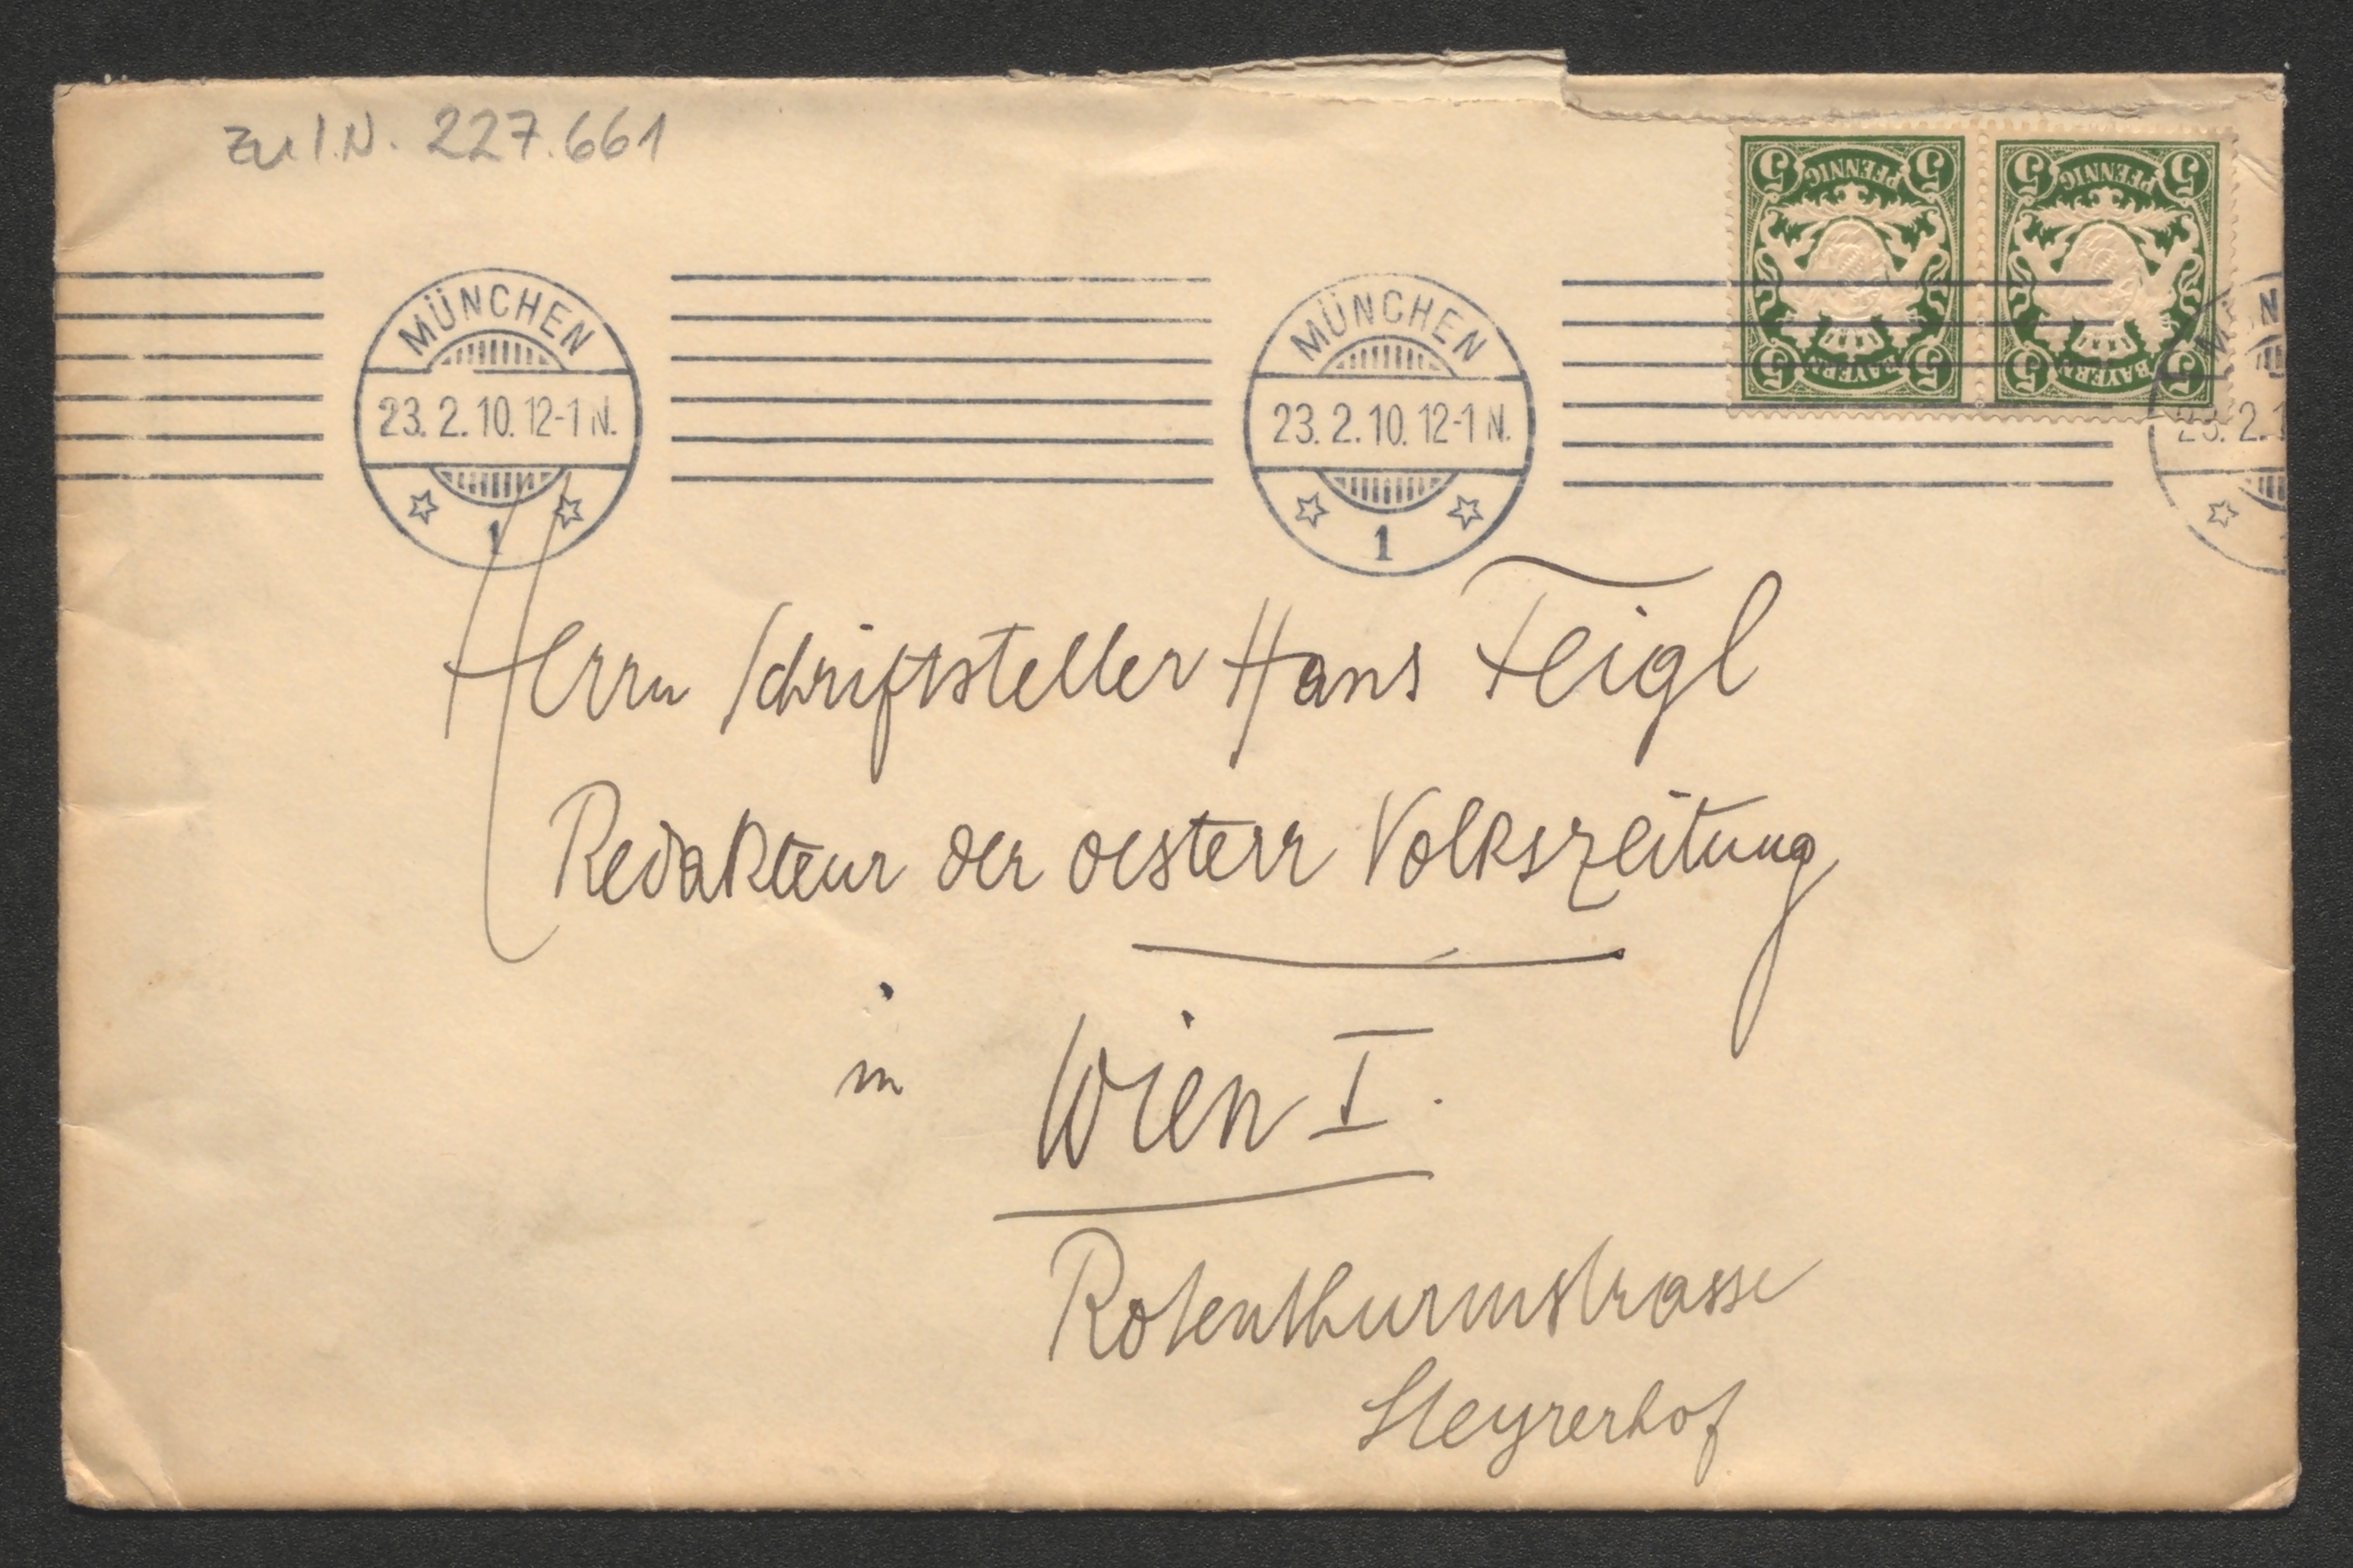 zu I.N. 227.661
5 PFENNIG 5
5 BAYERN 5
5 PFENNIG 5
5 BAYERN 5
MÜNCHEN
23. 2. 10. 12-1 N.
1
MÜNCHEN
23. 2. 10. 12-1 N.
1
23. 2. 1
Herrn Schriftsteller Hans Feigl
Redakteur der oesterr Volkszeitung
in Wien I.
Rotenthurmstrasse
Steyrerhof